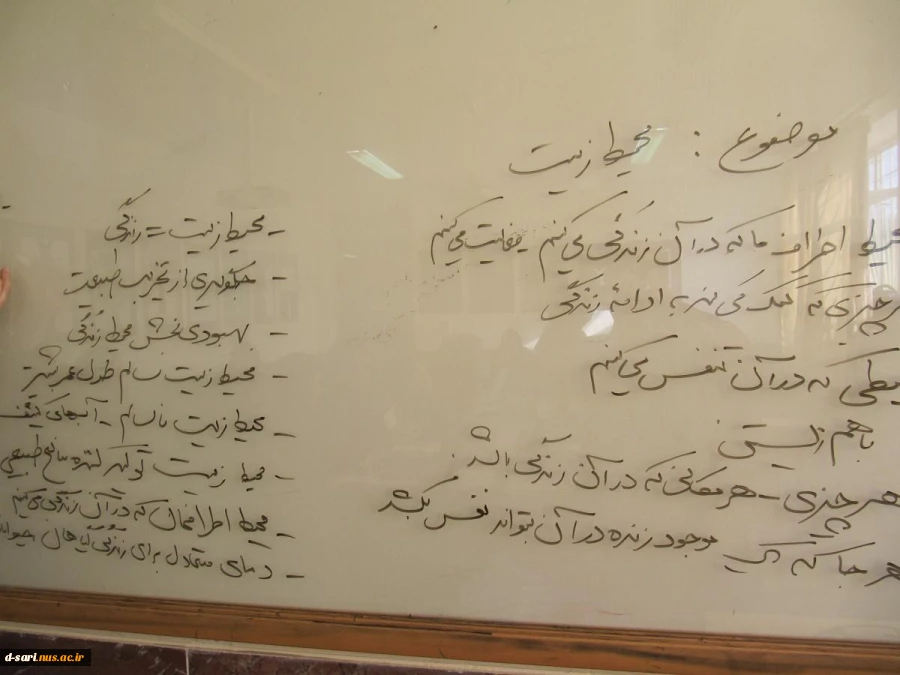 موضوع : محیط زیست
محیط اطراف ما که در آن زندگی می‌کنیم - فعالیت می‌کنیم
چیزی که کمک می‌کند به ادامه زندگی
که در آن تنفس می‌کنیم
با هم زیستی
هر چیزی - هر مکانی که در آن زندگی باشد.
هر جا که یک موجود زنده در آن بتواند نفس بکشد
- محیط زیست = زندگی
- جلوگیری از تخریب طبیعت
- بهبودی بخش محیط زندگی
- محیط زیست سالم طول عمر بیشتر
- محیط زیست ناسالم - آبهای کثیف
- محیط زیست طبیعی
- محیط اطرافمان که در آن زندگی می‌کنیم
- دمای متعادل برای زندگی گیاهان
d-sari.nus.ac.ir